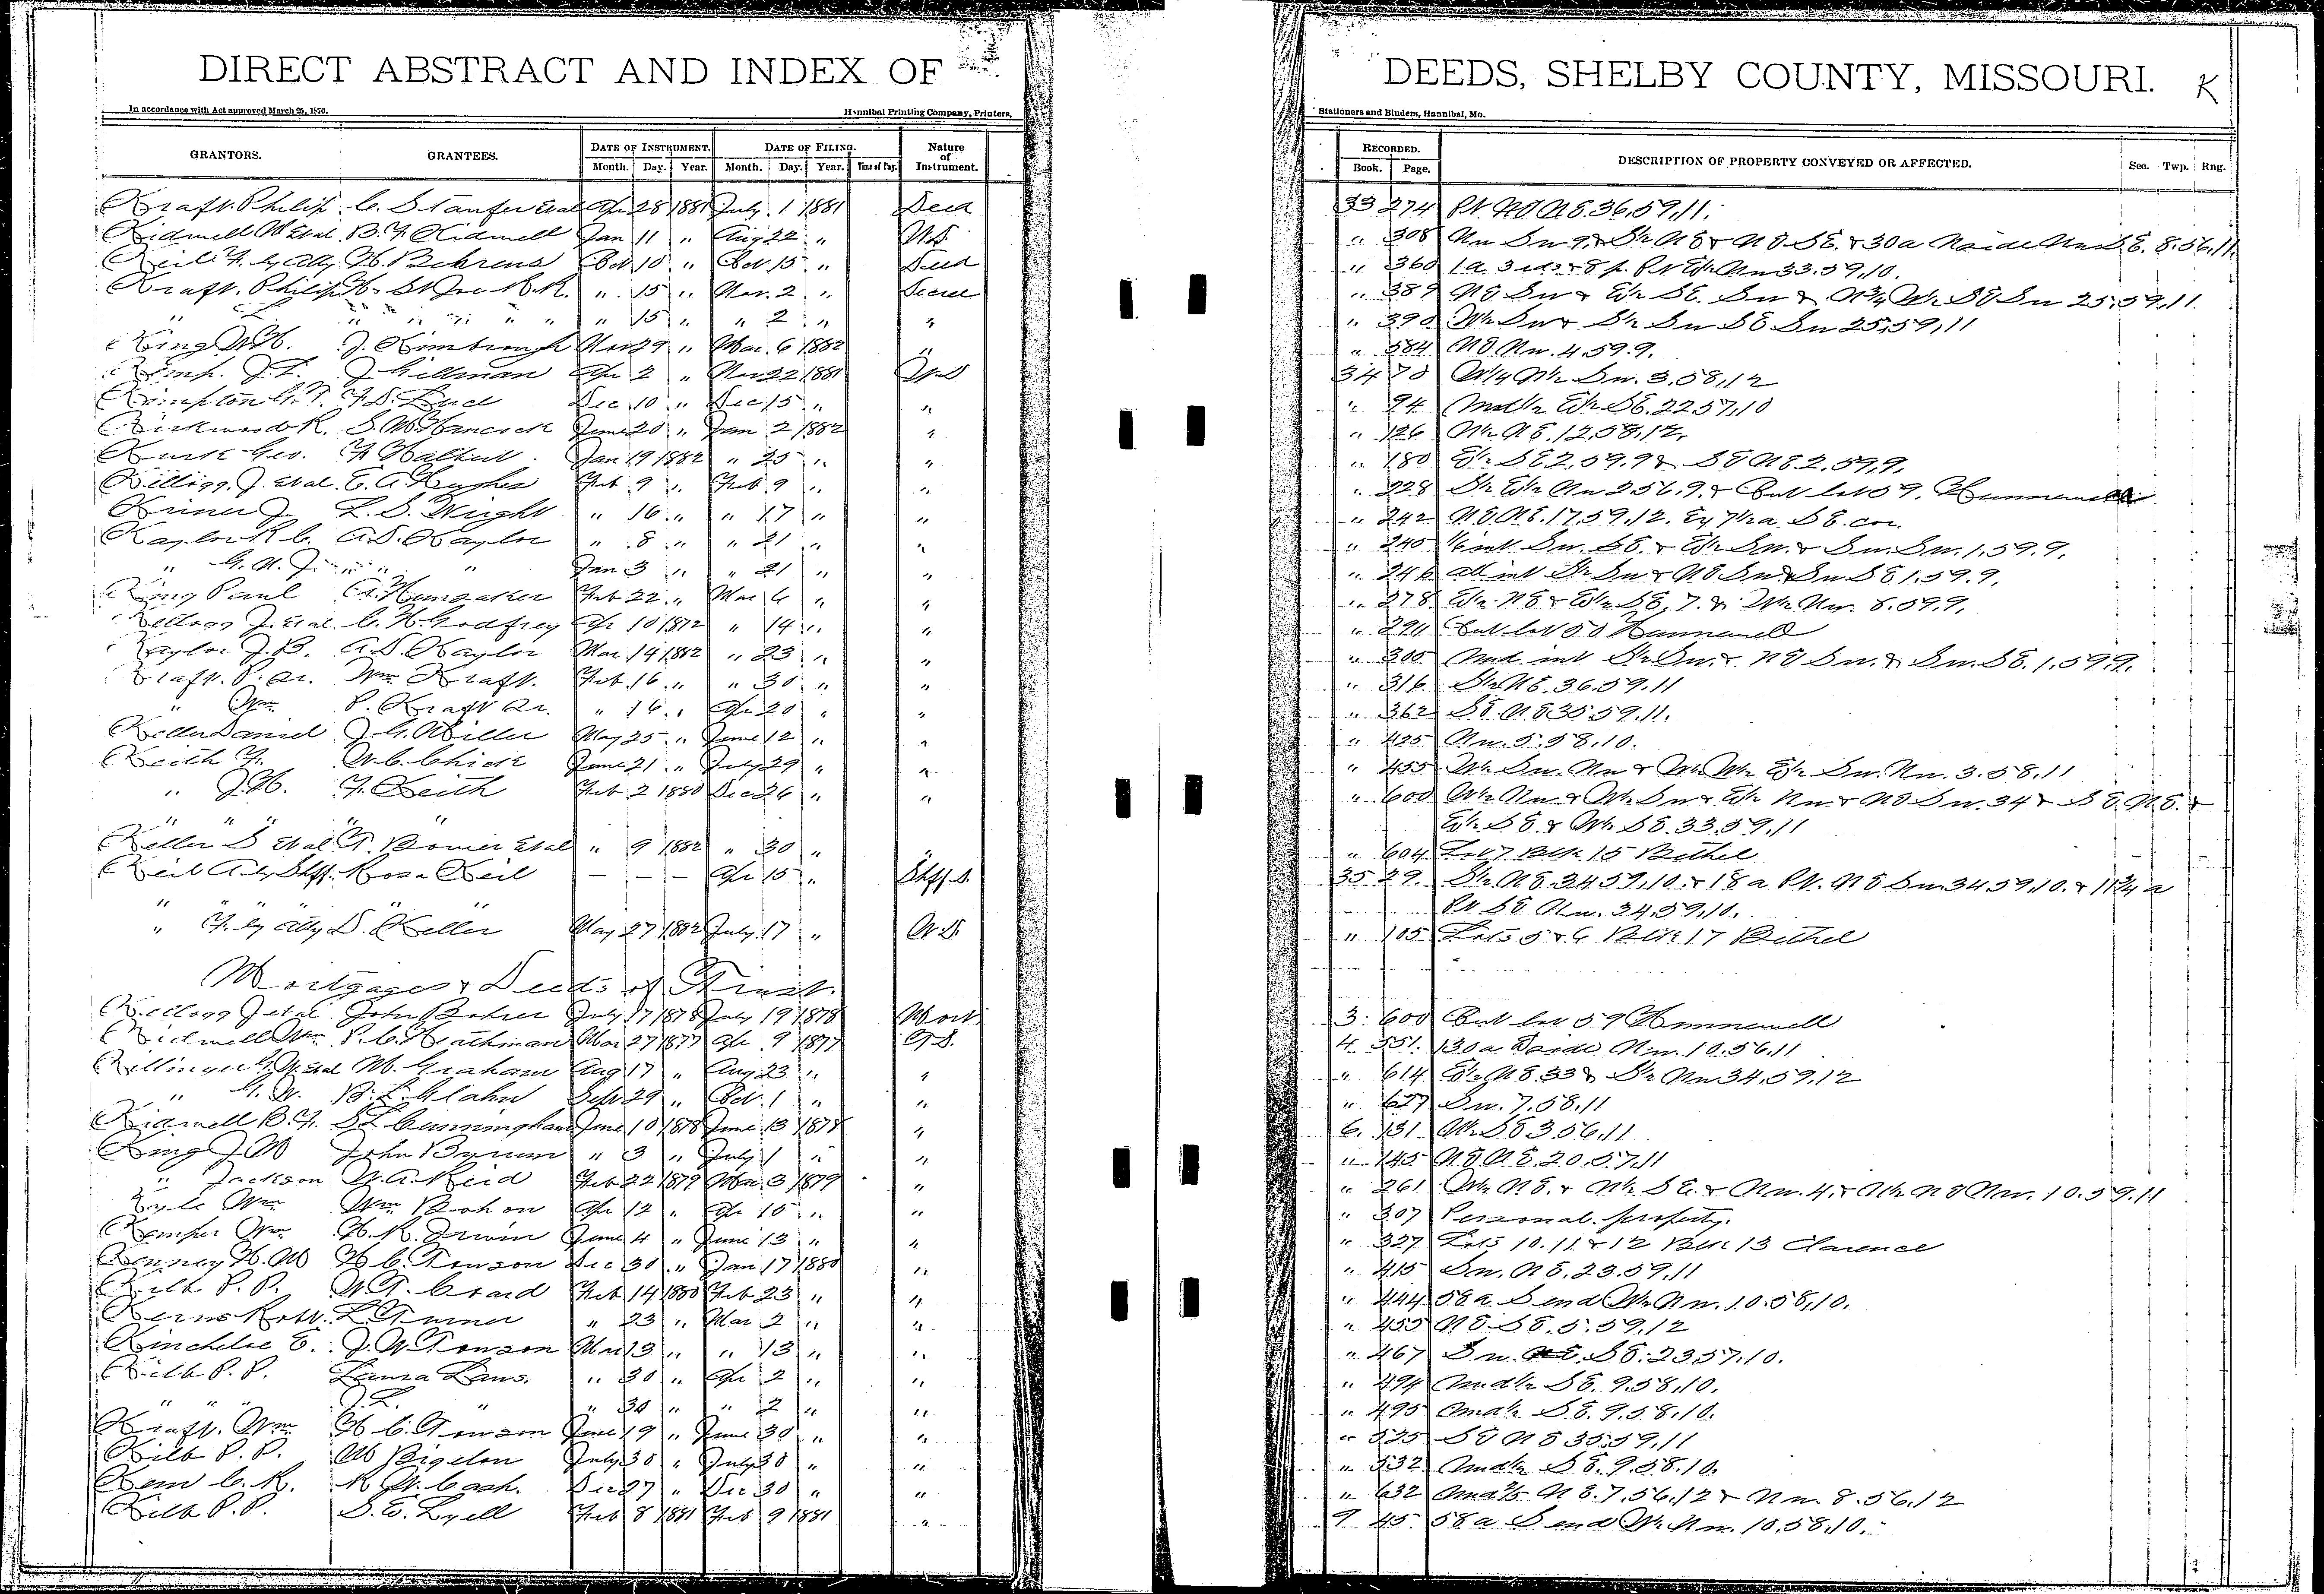 DIRECT ABSTRACT AND INDEX OF
In accordance with Act approved March 25, 1870. Hannibal Printing Company, Printers,
GRANTORS. GRANTEES. DATE OF INSTRUMENT. DATE OF FILING. Nature of Instrument.
Month. Day. Year. Month. Day. Year. Time of Day.
Kraft. Philip C. Staufer etal Apr 28 1881 July 1 1881 Deed
Kidwell W etal B. F. Kidwell Jan 11 " Aug 22 " W.D.
Keil F. by atty H. Behrens Oct 10 " Oct 15 " Deed
Kraft. Philip H. St Joe R.R. " 15 " Nov. 2 " Decree
" " " " " " " 15 " " 2 " "
King W.H. J. Kimbrough Nov 29 " Mar 6 1882 "
Kemp. J.T. J. Hillman Apr 2 " Nov 22 1881 W.D
Kimpton Dec 10 " Dec 15 " "
Kirkwood R. S. W. Hancock June 20 " Jan 2 1882 "
Geo. Jan 19 1882 " 25 " "
Kellogg. J. etal E. A. Hughes Feb 9 " Feb 9 " "
Kriner J L. S. Wright " 16 " " 17 " "
Kaylor R. C. A.D. Kaylor " 8 " " 21 " "
" G. A. J. " " Jan 3 " " 21 " "
King Paul A. Hunsaker Feb 22 " Mar 6 " "
Kellogg J. etal C. H. Godfrey Apr 10 1872 " 14 " "
Kaylor J. B. A.D. Kaylor Mar 14 1882 " 23 " "
Kraft. P. Sr. Wm Kraft. Feb. 16 " " 30 " "
" Wm P. Kraft Sr. " 16 " Apr 20 " "
Keller Daniel J. G. Miller May 25 " June 12 " "
Keith F. W. C. Chick June 21 " July 29 " "
" J.H. F. Keith Feb 2 1880 Dec 26 " "
" " " " "
Keller D etal T. Bower etal " 9 1882 " 30 " "
Keil A by Shff. Rosa Keil — — — Apr 15 " Shff D.
" " " " "
" F. by atty D. Keller May 27 1882 July 17 " W.D.
Mortgages & Deeds of Trust.
Kellogg J etal John Bohrer July 17 1878 July 19 1878 Mort
Kidwell Wm P. C. Heathman Mar 27 1877 Apr 9 1877 T.D.
Killinger G.W. etal M. Graham Aug 17 " Aug 23 " "
" G. W. B. L. Glahn Sept 29 " Oct 1 " "
Kidwell B. F. S L Cunningham June 10 1878 June 13 1878 "
King J. M John Bynum " 3 " July 1 " "
" Jackson W. A. Reid Feb 22 1879 Mar 3 1879 "
Kyle Wm Wm Bohon Apr 12 " Apr 15 " "
Kemper Wm H. R. Irwin June 4 " June 13 " "
Kenney H. M H. C. Towson Dec 30 " Jan 17 1880 "
Kilb P. P. W. T. Coard Feb 14 1880 Feb 23 " "
Kerns Robt. L. Turner " 23 " Mar 2 " "
Kincheloe E. J. W. Towson Mar 13 " " 13 " "
Kilb P. P. Laura Laws. " 30 " Apr 2 " "
" " " J. L. " " 30 " " 2 " "
Kraft. Wm H C. Towson June 19 " June 30 " "
Kilb P. P. W Bigelow July 30 " July 30 " "
Kem C. R. R. W. Cash. Dec 27 " Dec 30 " "
Kilb P. P. S. E. Lyell Feb 8 1881 Feb 9 1881 "
DEEDS, SHELBY COUNTY, MISSOURI. K
Stationers and Binders, Hannibal, Mo.
RECORDED. DESCRIPTION OF PROPERTY CONVEYED OR AFFECTED. Sec. Twp. Rng.
Book. Page.
33 274 Pt. NE NE. 36, 59, 11.
" 308 Nw Sw 9, & S½ NE & NE SE. & 30a N side Nw SE. 8. 56, 11.
" 360 1 a. 3 rds & 8 p. Pt E½ Nw 33. 59, 10.
" 389 NE Sw & E½ SE. Sw & N¾ W½ SE Sw 25, 59, 11.
" 390 W½ Sw & S½ Sw SE Sw 25, 59, 11
" 584 NE Nw. 4, 59. 9.
34 70 W¼ N½ Sw. 3, 58, 12
" 94 Und½ E½ SE. 22 57, 10
" 126 W½ NE. 12, 58, 12.
" 180 E½ SE 2, 59, 9 & SE NE 2, 59, 9.
" 228 S½ E½ Nw 2 56. 9. & Out lot 59. Hunnewell
" 242 NE NE. 17, 59, 12. Ex 7½ a SE. cor.
" 245 1/6 int Sw. SE. & E½ Sw. & Sw. Sw. 1. 59. 9.
" 246 all int S½ Sw & NE Sw & Sw SE 1, 59. 9.
" 278 E½ NE & E½ SE, 7. & W½ Nw. 8. 59, 9.
" 291 Out lot 50 Hunnewell
" 305 Und. int S½ Sw. & NE Sw. & Sw. SE. 1, 59, 9.
" 316 S½ NE. 36. 59. 11
" 362 SE. NE 35 59. 11.
" 425 Nw. 5. 58, 10.
" 455 W½ Sw. Nw & W½ W½ E½ Sw. Nw. 3. 58, 11
" 600 W½ Nw & W½ Sw & E½ Nw & NE Sw. 34 & SE. NE. &
E½ SE. & W½ SE. 33. 59, 11
" 604 Lot 7. Blk 15 Bethel
35 29. S½ NE 34 59, 10. & 18 a Pt. NE Sw 34 59, 10. & 11¾ a
Pt SE Nw. 34, 59, 10.
" 105. Lots 5 & 6 Blk 17 Bethel
3. 600 Out lot 59 Hunnewell
4. 551. 130 a S side Nw. 10, 56, 11
" 614 E½ NE. 33 & S½ Nw 34, 59, 12
" 627 Sw. 7, 58, 11
6. 131 W½ SE 3, 56, 11
" 145 NE NE. 20. 57, 11
" 261 W½ NE. & N½ SE. & Nw. 4, & N½ NE Nw. 10. 59. 11
" 307 Personal. property.
" 327 Lots 10. 11 & 12 Blk 13 Clarence
" 415 Sw. NE. 23. 59, 11
" 444 58 a. S end W½ Nw. 10. 58, 10.
" 455 NE SE. 5. 59, 12
" 467 Sw. SE. 23 57, 10.
" 494 Und½ SE. 9. 58, 10.
" 495 Und½ SE. 9. 58, 10.
" 525 SE NE 35, 59, 11
" 532 Und½ SE. 9. 58. 10.
" 632 Und⅖ NE. 7, 56, 12 & Nw 8. 56, 12
9 45. 58 a S end W½ Nw. 10, 58, 10.